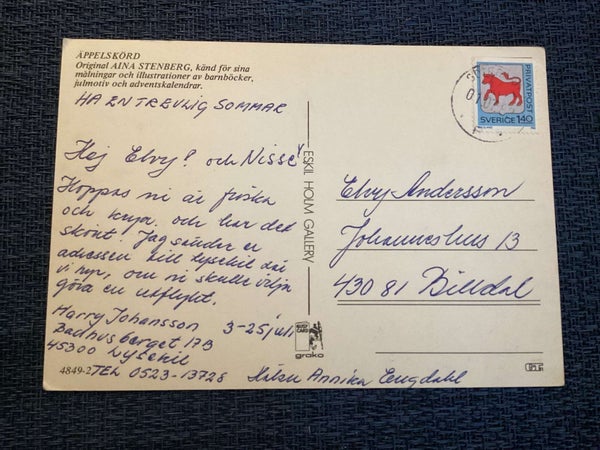 ÄPPELSKÖRD
Original AINA STENBERG, känd för sina
målningar och illustrationer av barnböcker,
julmotiv och adventskalendrar.
HA EN TREVLIG SOMMAR
Hej Elvy! och Nisse!
Hoppas ni är friska
och krya, och har det
skönt. Jag sänder er
adressen till Lysekil där
vi hyr, om ni skulle vilja
göra en utflykt.
Harry Johansson 3-25 juli
Badhusberget 17B
45300 Lysekil
4849-2 TEL 0523-13728
Hälsn Annika Engdahl
ESKIL HOLM GALLERY
grako
PRIVATPOST
SVERIGE 140
Elvy Andersson
Johanneshus 13
430 81 Billdal